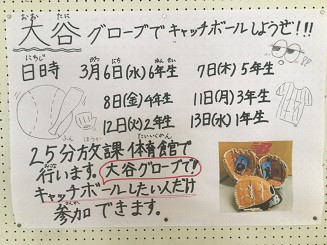 大谷グローブでキャッチボールしようぜ!!!
日時 3月6日(水)6年生 7日(木)5年生
8日(金)4年生 11日(月)3年生
12日(火)2年生 13日(水)1年生
25分放課 体育館で
行います。大谷グローブで
キャッチボールしたい人だけ
参加できます。